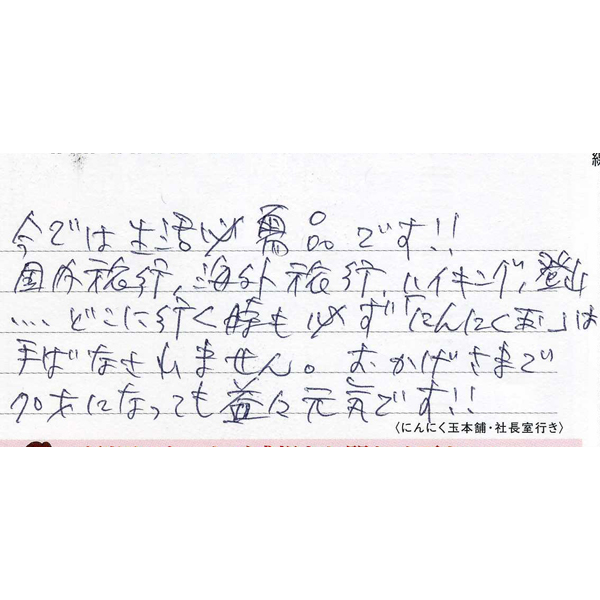 今では生活必需品です!!
国内旅行,海外旅行,ハイキング,登山
‥‥どこに行く時も必ず「にんにく玉」は
手ばなされません。おかげさまで
70才になっても益々元気です!!
〈にんにく玉本舗・社長室行き〉